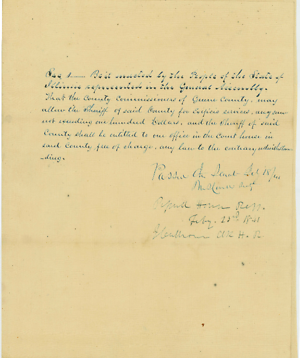 Sec 1— Be it enacted by the People of the State of
Illinois represented in the General Assembly,
That the County Commissioners of County, may
allow the Sheriff of said County for services, any sum
not exceeding one hundred dollars, and the Sheriff of said
County shall be entitled to an office in the Court house in
said County free of charge, any law to the contrary notwithstan-
ding.
Passed the
House
Feby. 23rd 1841
Clk H. R